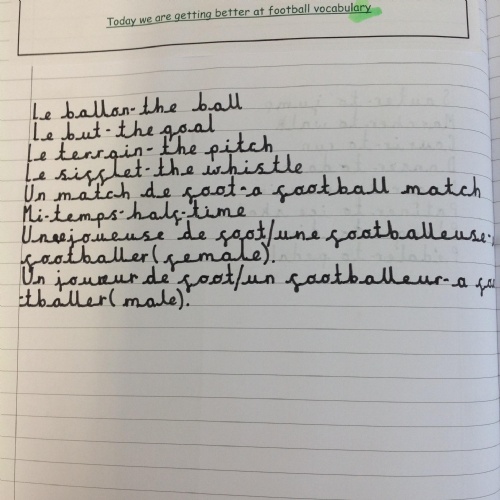 Today we are getting better at football vocabulary
Le ballon-the ball
Le but-the goal
Le terrain-the pitch
Le sifflet-the whistle
Un match de foot-a football match
Mi-temps-half-time
Une joueuse de foot/une footballeuse-
footballer(female).
Un joueur de foot/un footballeur-a foo
tballer(male).